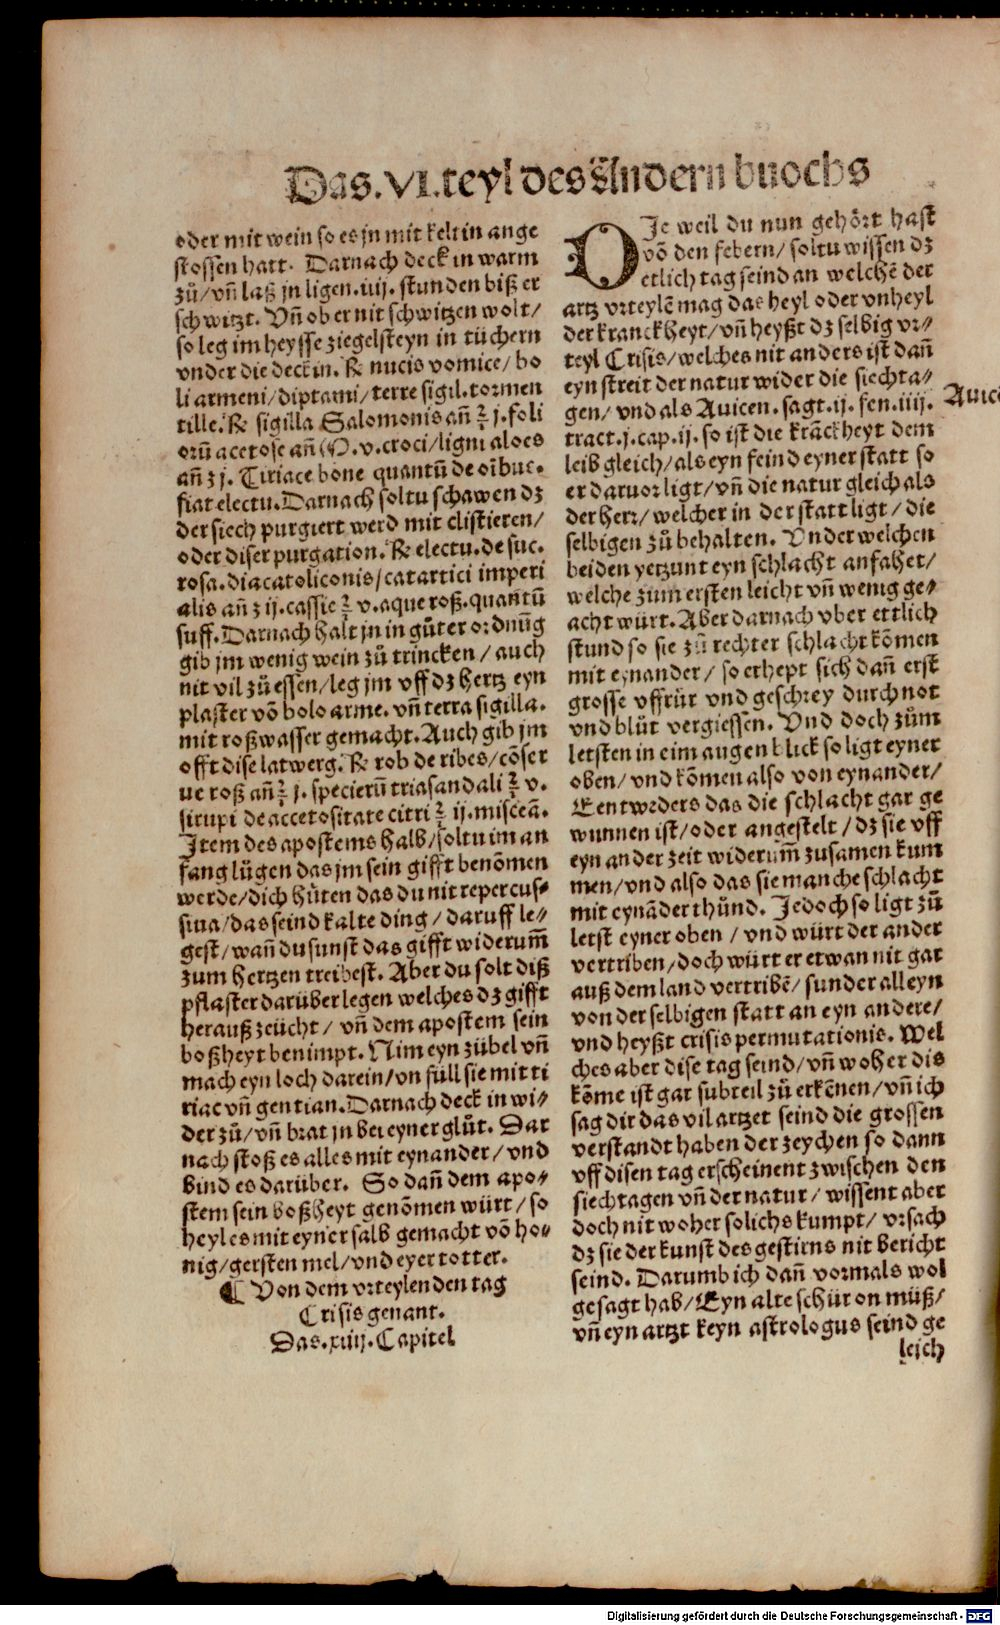 Das.VI.teyl des Andern buochs
oder mit wein so es jn mit kelt in ange
stossen hatt. Darnach deck in warm
zů/ vñ laß jn ligen.iiij. stunden biß er
schwitzt. Vñ ob er nit schwitzen wolt/
so leg im heysse ziegelsteyn in tüchern
vnder die deckin. ℞ nucis vomice/ bo
li armeni/ diptami/ terre sigil. tormen
tille. ℞ sigilla Salomonis añ ℥ j. foli
orũ acetose añ M. v. croci/ ligni aloes
añ ʒ j. Tiriace bone quantũ de oĩbus.
fiat electu. Darnach soltu schawen dz
der siech purgiert werd mit clistieren/
oder diser purgation. ℞ electu. de suc.
rosa. diacatoliconis/ catartici imperi
alis añ ʒ ij. cassie ℥ v. aque roß. quantũ
suff. Darnach halt jn in gůter ordnũg
gib jm wenig wein zů trincken/ auch
nit vil zů essen/ leg jm vff dz hertz eyn
plaster võ bolo arme. vñ terra sigilla.
mit roßwasser gemacht. Auch gib jm
offt dise latwerg. ℞ rob de ribes/ cõser
ue roß añ ℥ j. specierũ triasandali ℥ v.
sirupi de accetositate citri ℥ ij. misceã.
Item des apostems halb/ soltu im an
fang lůgen das jm sein gifft benõmen
werde/ dich hůten das du nit repercus-
siua/ das seind kalte ding/ daruff le-
gest/ wañ du sunst das gifft widerum̃
zum hertzen treibest. Aber du solt diß
pflaster darüber legen welches dz gifft
herauß zeücht/ vñ dem apostem sein
boßheyt benimpt. Nim eyn zübel vñ
mach eyn loch darein/ vn füll sie mit ti
riac vñ gentian. Darnach deck in wi-
der zů/ vñ brat jn bei eyner glůt. Dar
nach stoß es alles mit eynander/ vnd
bind es darüber. So dañ dem apo-
stem sein boßheyt genõmen würt/ so
heyl es mit eyner salb gemacht võ ho-
nig/ gersten mel/ vnd eyer totter.
¶ Von dem vrteylenden tag
Crisis genant.
Das.xiiij.Capitel
DIe weil du nun gehört hast
võ den febern/ soltu wissen dz
etlich tag seind an welchẽ der
artz vrteylẽ mag das heyl oder vnheyl
der kranckheyt/ vñ heyßt dz selbig vr-
teyl Crisis/ welches nit anders ist dañ
eyn streit der natur wider die siechta-
gen/ vnd als Auicen. sagt.ij. fen.iiij.
Auice
tract.j.cap.ij. so ist die krãckheyt dem
leib gleich/ als eyn feind eyner statt so
er daruor ligt/ vñ die natur gleich als
der herr/ welcher in der statt ligt/ die
selbigen zů behalten. Vnder welchen
beiden yetzunt eyn schlacht anfahet/
welche zům ersten leicht vñ wenig ge-
acht würt. Aber darnach vber ettlich
stund so sie zů rechter schlacht kõmen
mit eynander/ so erhept sich dañ erst
grosse vffrůr vnd geschrey durch not
vnd blůt vergiessen. Vnd doch zům
letsten in eim augenblick so ligt eyner
oben/ vnd kõmen also von eynander/
Eentweders das die schlacht gar ge
wunnen ist/ oder angestelt/ dz sie vff
eyn ander zeit widerum̃ zusamen kum
men/ vnd also das sie manche schlacht
mit eynãder thůnd. Jedoch so ligt zů
letst eyner oben/ vnd würt der ander
vertriben/ doch würt er etwan nit gar
auß dem land vertribẽ/ sunder alleyn
von der selbigen statt an eyn andere/
vnd heyßt crisis permutationis. Wel
ches aber dise tag seind/ vñ woher dis
kõme ist gar subteil zů erkẽnen/ vñ ich
sag dir das vil artzet seind die grossen
verstandt haben der zeychen so dann
vff disen tag erscheinent zwischen den
siechtagen vñ der natur/ wissent aber
doch nit woher solichs kumpt/ vrsach
dz sie der kunst des gestirns nit bericht
seind. Darumb ich dañ vormals wol
gesagt hab/ Eyn alte schür on müß/
vñ eyn artzt keyn astrologus seind ge
leich
Digitalisierung gefördert durch die Deutsche Forschungsgemeinschaft - DFG